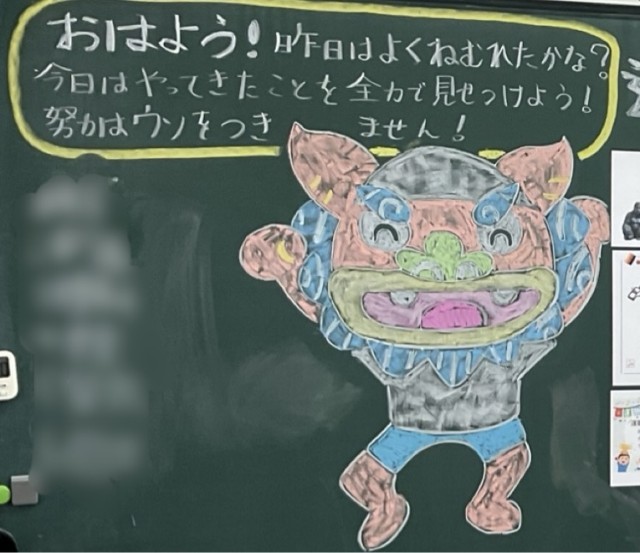 おはよう！昨日はよくねむれたかな？
今日はやってきたことを全力で見せつけよう！
努力はウソをつき ません！